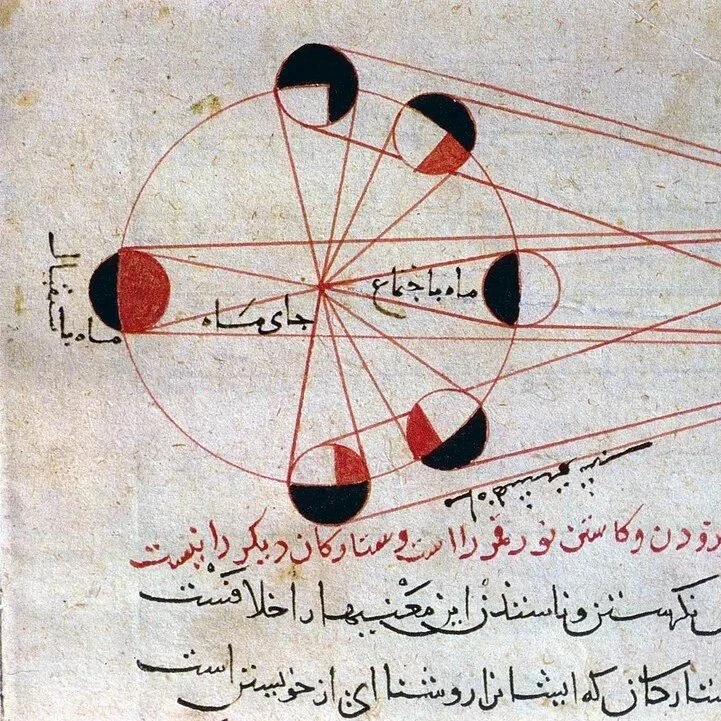 ماه باجتماع
جای ماه
ماه باستقبال
زودن و کاستن نور قمر را است و ستارکان دیکر را نیست
نکرستن و دانستن این معنیها را خلافست
ستارکان که ایشانرا روشنائی از خویشتن است